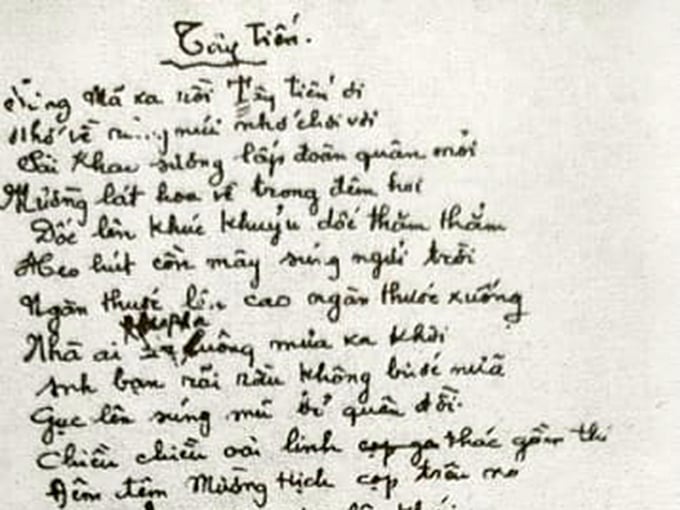 Tây Tiến.
Sông Mã xa rồi Tây tiến ơi
Nhớ về rừng núi nhớ chơi vơi
Sài Khao sương lấp đoàn quân mỏi
Mường lát hoa về trong đêm hơi
Dốc lên khúc khuỷu dốc thăm thẳm
Heo hút cồn mây súng ngửi trời
Ngàn thước lên cao ngàn thước xuống
Nhà ai luông mưa xa khơi
Anh bạn rãi rầu không bước nữa
Gục lên súng mũ bỏ quên đời.
Chiều chiều oai linh thác gầm thé
Đêm đêm Mường Hịch cọp trêu